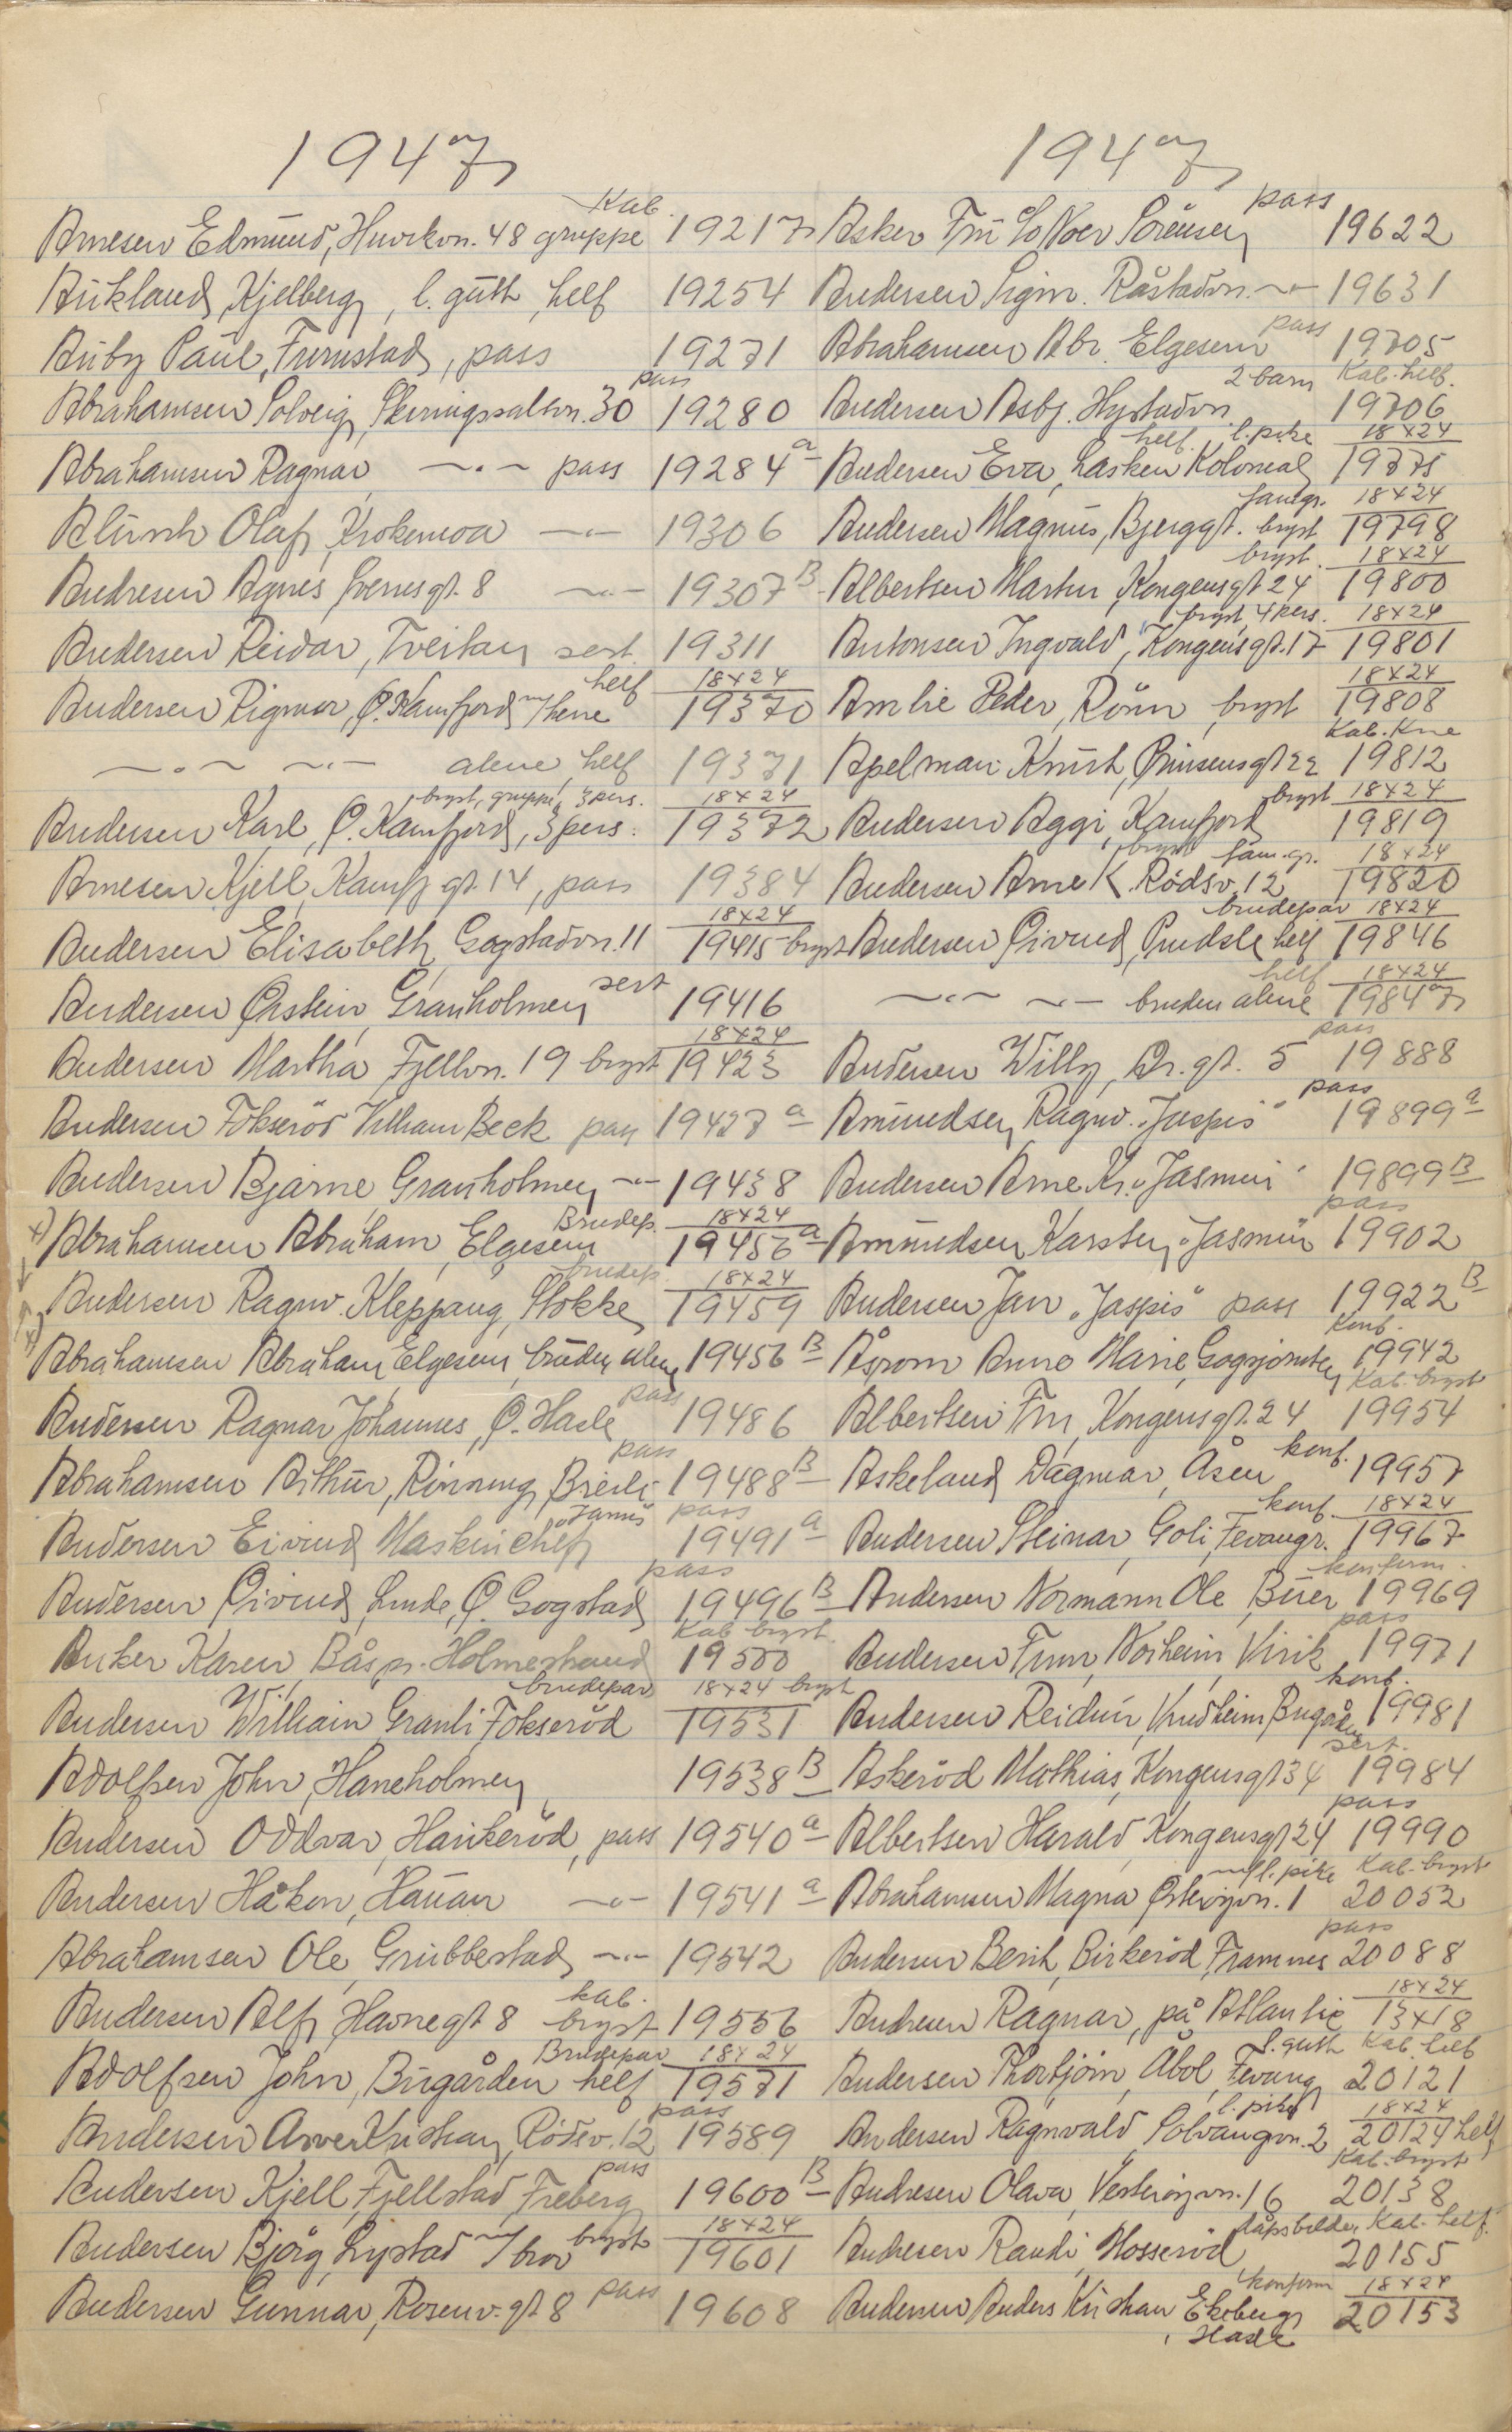 1947
Arnesen Edmund, Huvikvn. 48 gruppe Kab. 19217
Aukland, Kjelberg, l. gutt, helf 19254
Auby Paul, Furustad, pass 19271
Abrahamsen Solveig, Skiringssalvn. 30 pass 19280
Abrahamsen Ragnar —〃— pass 19284 a
Olaf, Krokemoa —〃— 19306
Andresen Agnes, gt. 8 —〃— 19307 B
Andersen Reidar, Tveitan sert. 19311
Andersen Rigmor, Ø. Kamfjord, m/ helf 18x24 19370
—〃— —〃— alene, helf 19371
Andersen Karl, Ø. Kamfjord, 3 pers. bryst, gruppe, 3 pers. 18x24 19372
Arnesen Kjell, Kamfj.gt. 14, pass 19384
Andersen Elisabeth, Gogstadvn. 11 18x24 19415 bryst
Andersen Øistein, Granholmen sert 19416
Andersen Martha Fjellvn. 19 bryst 18x24 19423
Andersen Fokserød William Beck pass 19427 a
Andersen Bjarne, Granholmen —〃— 19438
x) Abrahamsen Abraham, Elgesem Brudep. 18x24 19456 a
Andersen Ragnv. Kleppang, Stokke brudep. 18x24 19459
Abrahamsen Abraham, Elgesem, bruden alene 19456 B
Andersen Ragnar Johannes, Ø. Hasle pass 19486
Abrahamsen Arthur, Rønning, pass 19488 B
Andersen Eivind Maskinchef, "Janus" pass 19491 a
Andersen Øivind, Linde, Ø. Gogstad pass 19496 B
Anker Karen, Holmestrand Kab. bryst. 19500
Andersen William Granli, Fokserød brudepar 18x24 bryst 19531
Adolfsen John, Haneholmen 19538 B
Andersen Oddvar, Haukerød, pass 19540 a
Andersen Håkon, Hauan —〃— 19541 a
Abrahamsen Ole, Grubbestad —〃— 19542
Andersen Alf, Havnegt 8 kab. bryst 19556
Adolfsen John, Bugården helf Brudepar 18x24 19571
Andersen Arve Kristian, Rödsv. 12 pass 19589
Andersen Kjell, Fjellstad, Freberg pass 19600 B
Andersen Bjørg, Lystad m/ bror bryst 18x24 19601
Andersen Gunnar, Rosenv.gt 8 pass 19608
1947
Asker Fru c/o Noer Sörensen pass 19622
Andersen Sigm. Råstadvn. —〃— 19631
Abrahamsen Abr. Elgesem pass 19705
Andersen Asbj. Hystadvn. 2 barn Kab. helf. 19706
Andersen Eva, Lasken Kolonial helf. l. pike 18x24 19775
Andersen Magnus, Bjerggt. bryst famgr. 18x24 19798
Albertsen Martin, Kongensgt 24 bryst. 18x24 19800
Antonsen Ingvald, Kongensgt. 17 bryst, 4 pers. 18x24 19801
Amlie Peder, Rönn, bryst 18x24 19808
Apelman Knut, Prinsensgt 22 Kab. Kne 19812
Andersen Aggi, Kamfjord bryst 18x24 19819
Andersen Arne K. Rödsv. 12 bryst fam. gr. 18x24 19820
Andersen Øivind, Pindsle helf brudepar 18x24 19846
—〃— —〃— bruden alene helf 18x24 19847
Andersen Willy, Dr. gt. 5 pass 19888
Amundsen, Ragnv. "Jaspis" pass 19899 a
Andersen Arne Kr. "Jasmin" 19899 B
Amundsen Karsten, "Jasmin" pass 19902
Andersen Jan "Jaspis" pass 19922 B
Anne Marie, Konf. 19942
Albertsen Fru, Kongensgt. 24 Kab. bryst 19954
Askeland Dagmar, Åsen konf. 19957
Andersen Steinar, Goli, Fevangr. konf. 18x24 19967
Andersen Normann Ole, Buer konfirm. 19969
Andersen Finn, Norheim, Virik pass 19971
Andersen Reidun, Vindheim, Bugården konf. 19981
Askeröd Mathias, Kongensgt 34 sert. 19984
Albertsen Harald, Kongensgt 24 pass 19990
Abrahamsen Magna Østerøyvn. 1 m/ l. pike Kab. bryst 20052
Andersen Berit, Birkeröd, Framnes pass 20088
Andresen Ragnar, på Atlantic 18x24 13x18
Andersen Thorbjørn, Åbol, Fevang l. gutt Kab. helf 20121
Andersen Ragnvald, Solvangvn. 2 l. pike 18x24 20124 helf
Andresen Olava, Vesterøyvn. 16 Kab. bryst 20138
Andresen Randi, Mosseröd dåpsbilde, Kab. helf. 20155
Andersen Anders Kristian Ekeberg, Hasle konfirm 18x24 20153